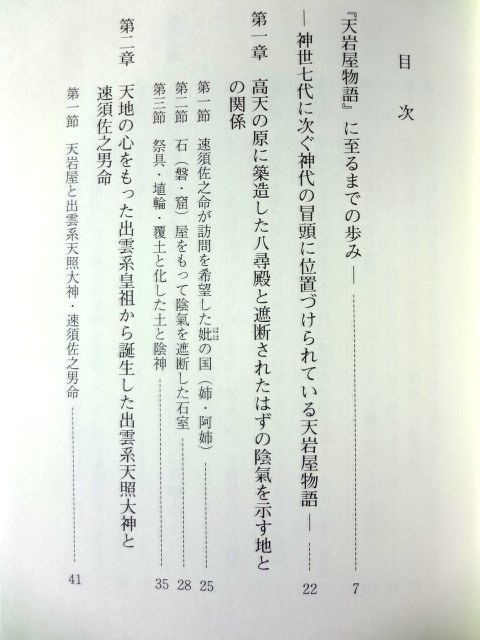 目次
『天岩屋物語』に至るまでの歩み― 7
―神世七代に次ぐ神代の冒頭に位置づけられている天岩屋物語― 22
第一章 高天の原に築造した八尋殿と遮断されたはずの陰氣を示す地と
の関係
第一節 速須佐之命が訪問を希望した妣の国(姉・阿姉) 25
はは
第二節 石(磐・窟)屋をもって陰氣を遮断した石室 28
第三節 祭具・埴輪・覆土と化した土と陰神 35
第二章 天地の心をもった出雲系皇祖から誕生した出雲系天照大神と
速須佐之男命
第一節 天岩屋と出雲系天照大神・速須佐之男命 41